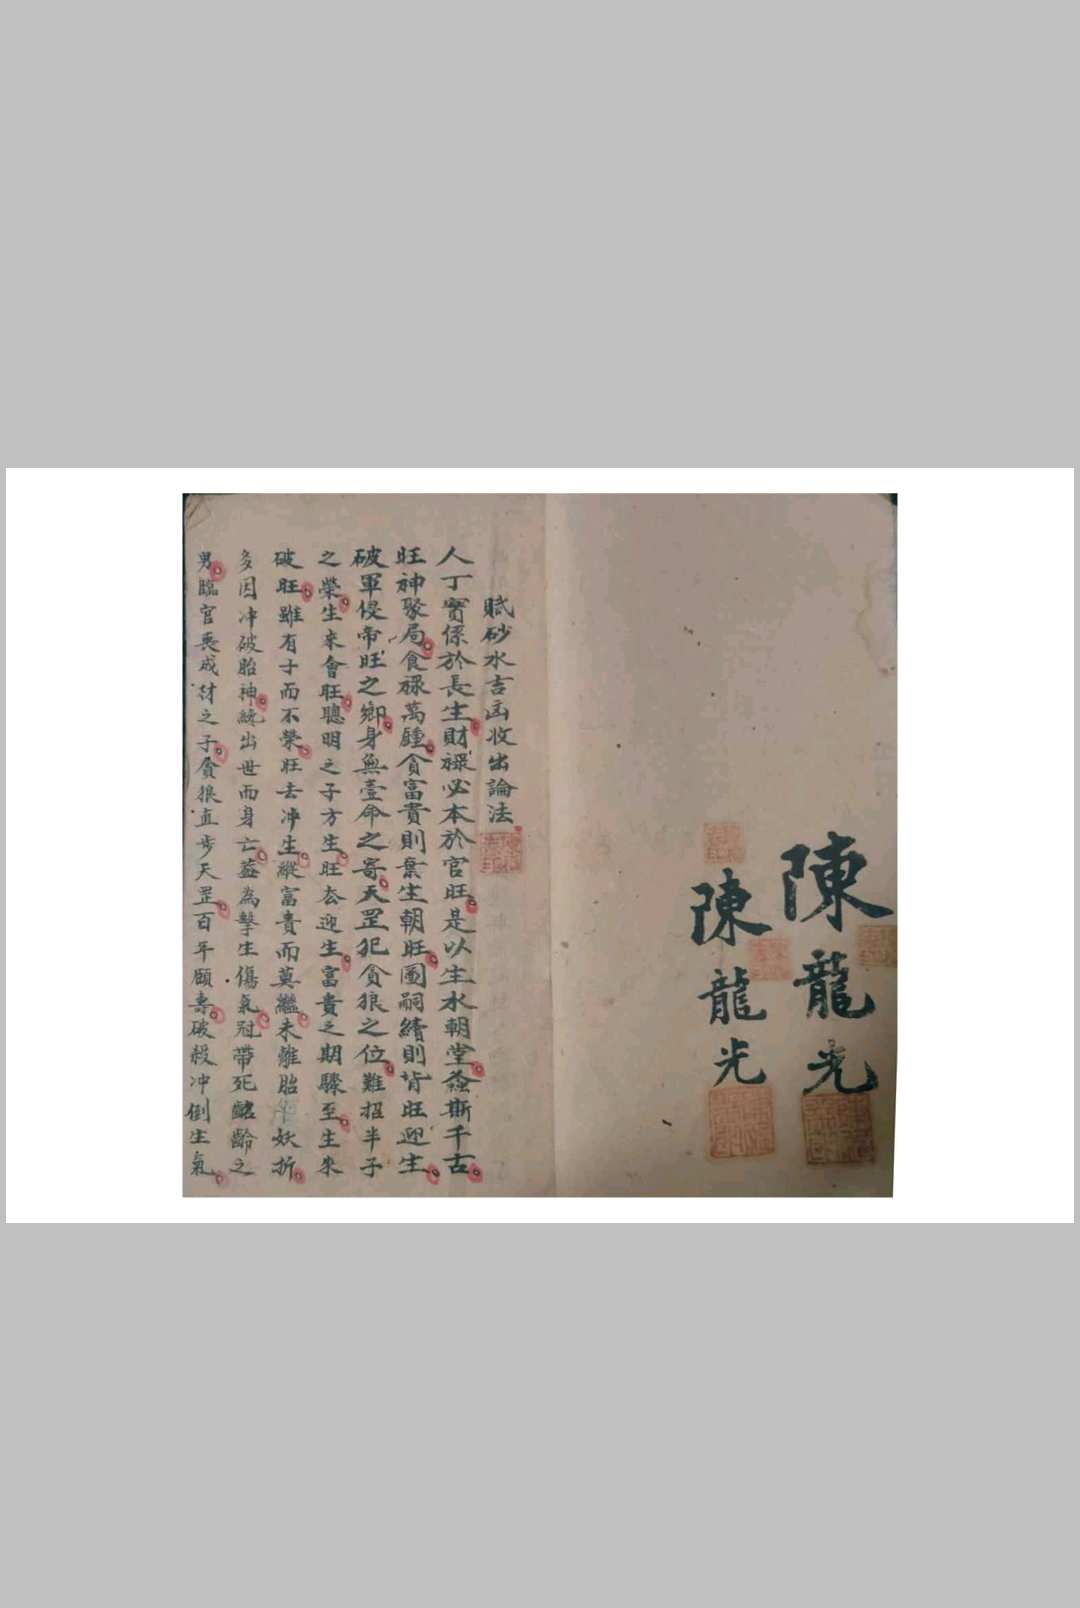 陳龍光
陳龍光
賦砂水吉凶收出論法
人丁寔係於長生財祿必本於官旺是以生水朝堂螽斯千古
旺神聚局食祿萬鍾貪富貴則棄生朝旺圖嗣續則背旺迎生
破軍侵帝旺之鄉身無壹命之寄天罡犯貪狼之位難招半子
之榮生來會旺聰明之子方生旺去迎生富貴之期驟至生來
破旺雖有子而不榮旺去冲生縱富貴而莫繼未離胎而妖折
多因冲破胎神纔出世而身亡蓋為擊生傷氣冠帶死齠齡之
男臨官喪成材之子貪狼直步天罡百年願壽破殺冲倒生氣